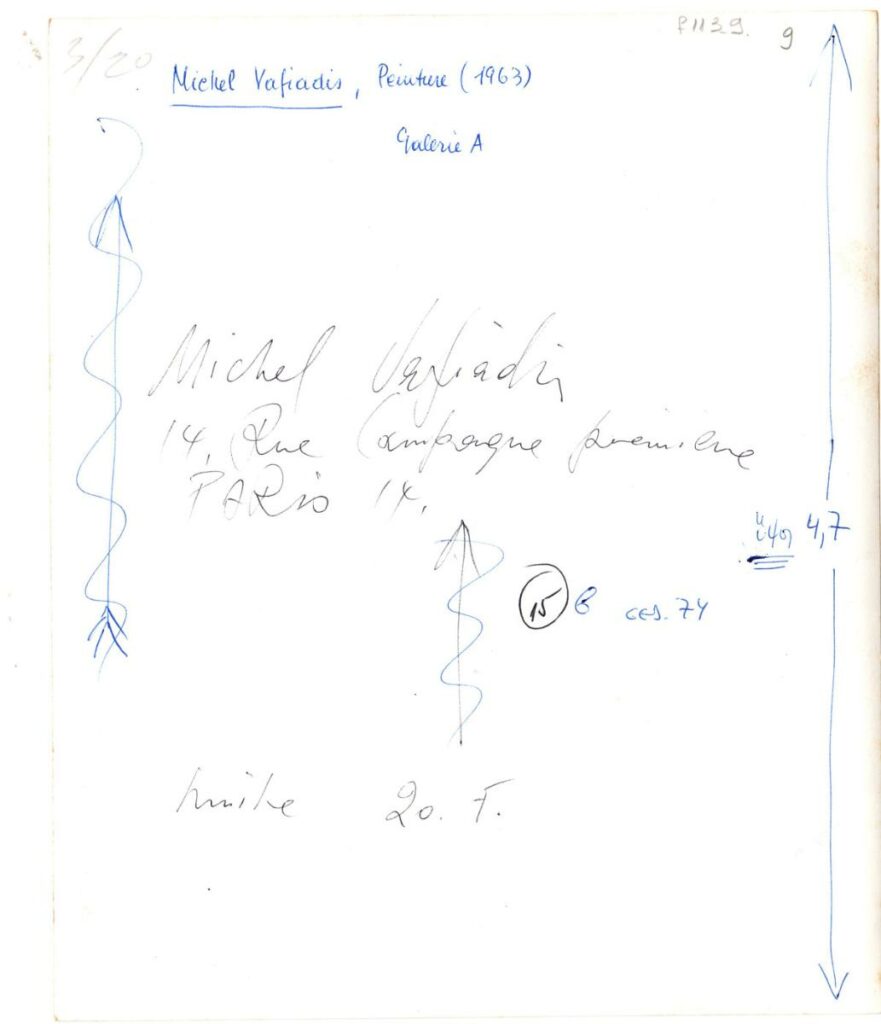 P1139. 9
3/20
Michel Vafiadis, Peinture (1963)
Galerie A
Michel Vafiadis
14, Rue Campagne première
PARis 14.
4,7
15 B ces. 74
20. F.